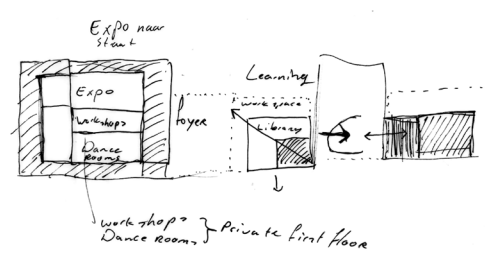 Expo naar
Start
Expo
workshops
Dance
Rooms
foyer
Learning
work space
Library
workshops
Dance rooms
Private first floor